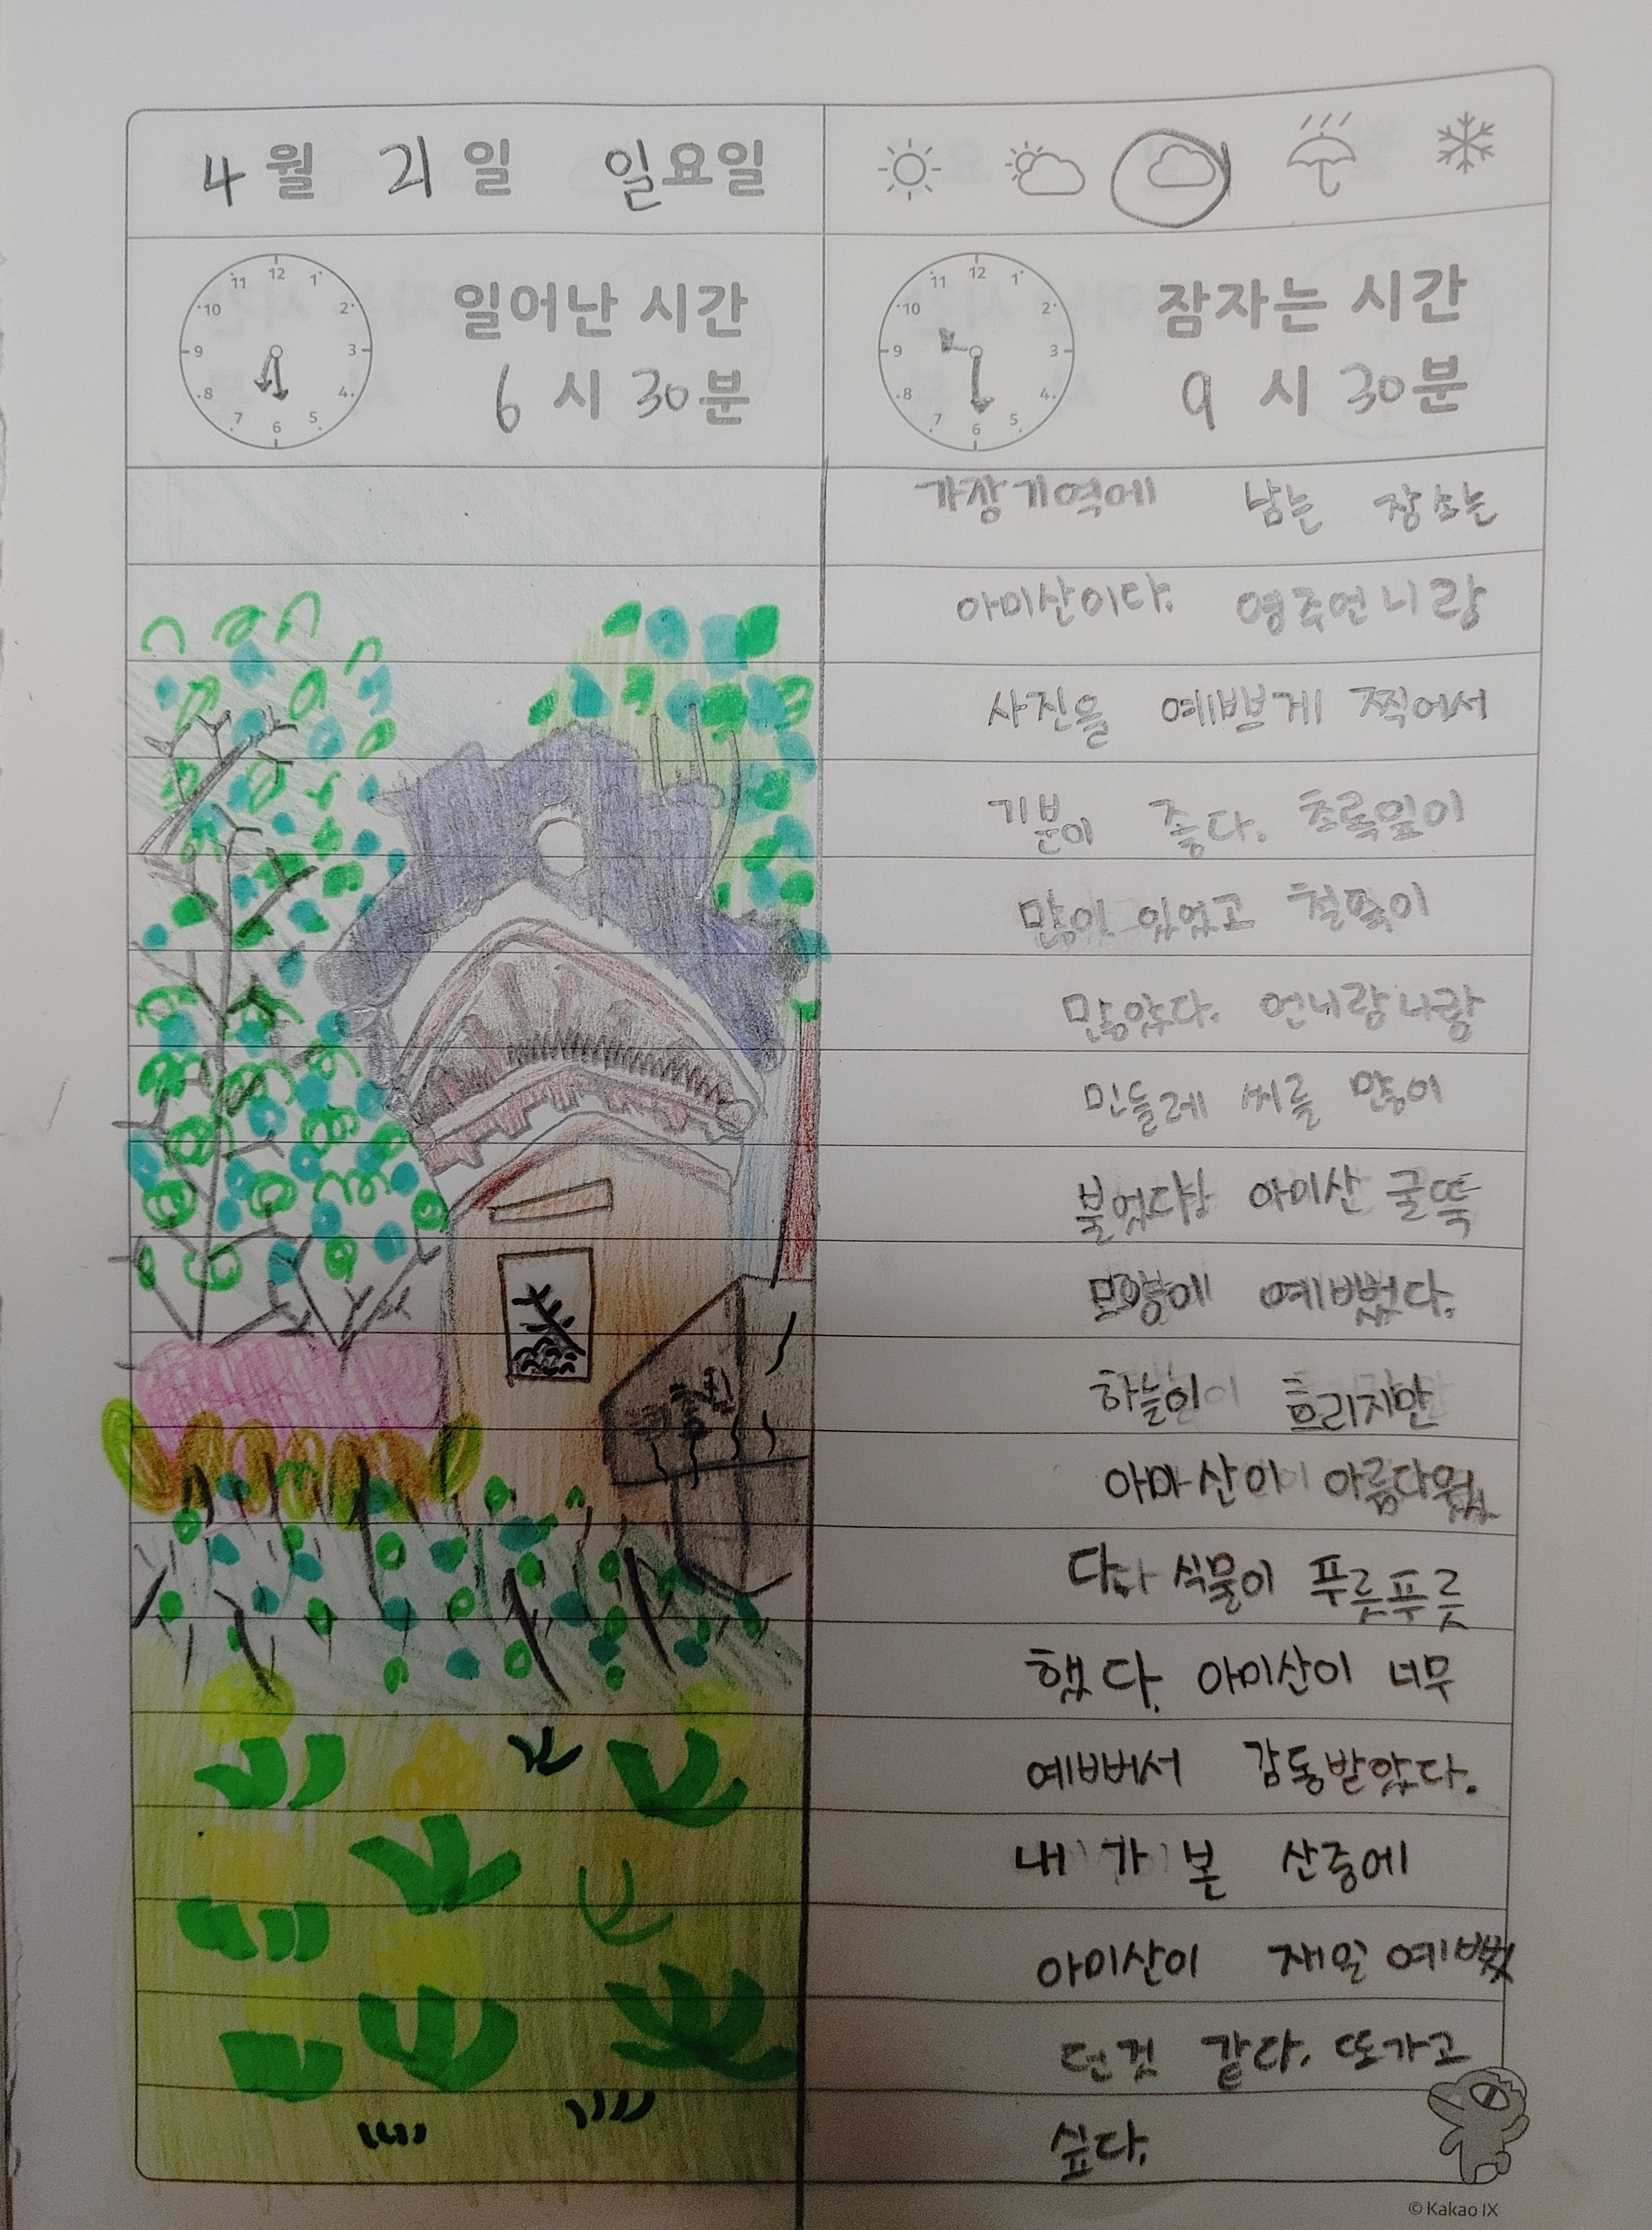 4월 21일 일요일
12 1 2 3 4 5 6 7 8 9 10 11
일어난 시간
6시 30분
12 1 2 3 4 5 6 7 8 9 10 11
잠자는 시간
9시 30분
가장기억에 남는 장소는
아미산이다. 영주언니랑
사진을 예쁘게 찍어서
기분이 좋다. 초록잎이
많이 있었고 철쭉이
많았다. 언니랑나랑
민들레 씨를 많이
불었다. 아미산 굴뚝
모양에 예뻤다.
하늘이 흐리지만
아미산이 아름다웠
다. 식물이 푸릇푸릇
했다. 아미산이 너무
예뻐서 감동받았다.
내가 본 산중에
아미산이 재일 예뻤
던것 같다. 또가고
싶다.
© Kakao IX